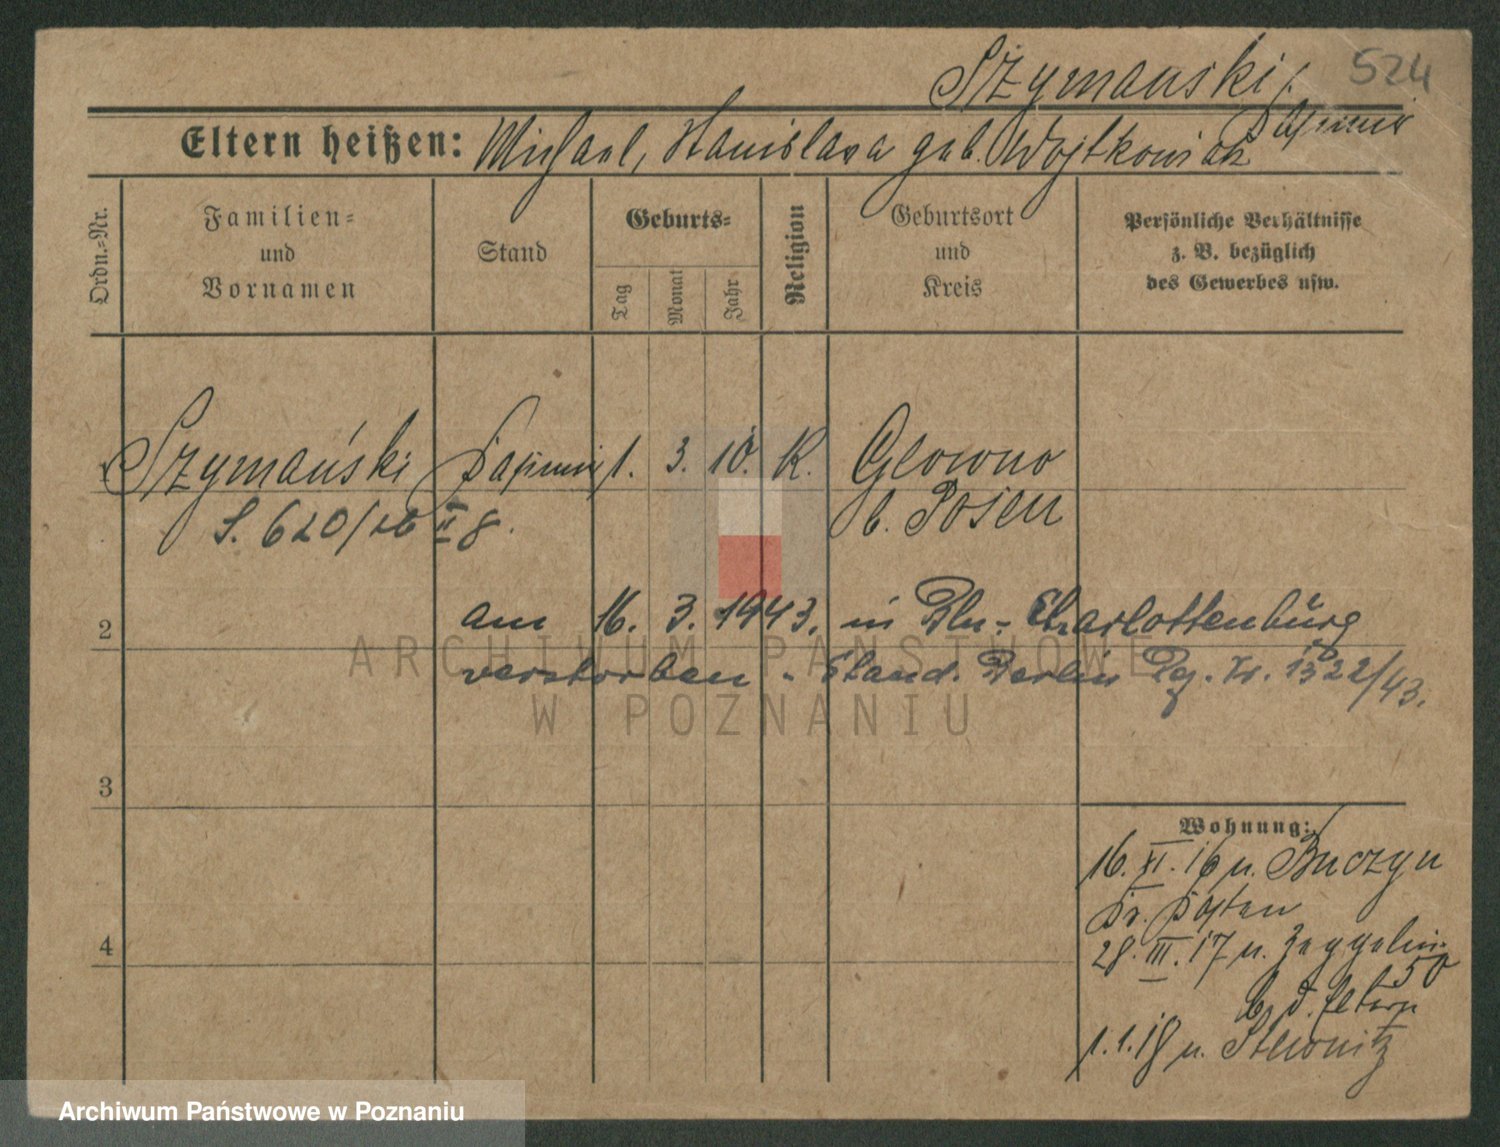 Szymanski, 524
Kasimir
Eltern heißen: Michael, Stanislawa geb. Wojtkowiak
Ordn.=Nr.
Familien=
und
Vornamen
Stand
Geburts=
Tag
Monat
Jahr
Religion
Geburtsort
und
Kreis
Persönliche Verhältnisse
z. B. bezüglich
des Gewerbes usw.
1 Szymański Kasimir 1. 3. 10. K. Glowno
b. Posen
S. 620/26 II 8.
am 16. 3. 1943. in Bln.-Charlottenburg
2
verstorben. Stand. Berlin Rg. Nr. 1322/43.
3
4
Wohnung:
16. XI. 16 n.
Kr. Kosten
28. III. 17 n. Zeppelin
50
b. d. Eltern
1. 1. 18 n.
ARCHIWUM PAŃSTWOWE
W POZNANIU
Archiwum Państwowe w Poznaniu